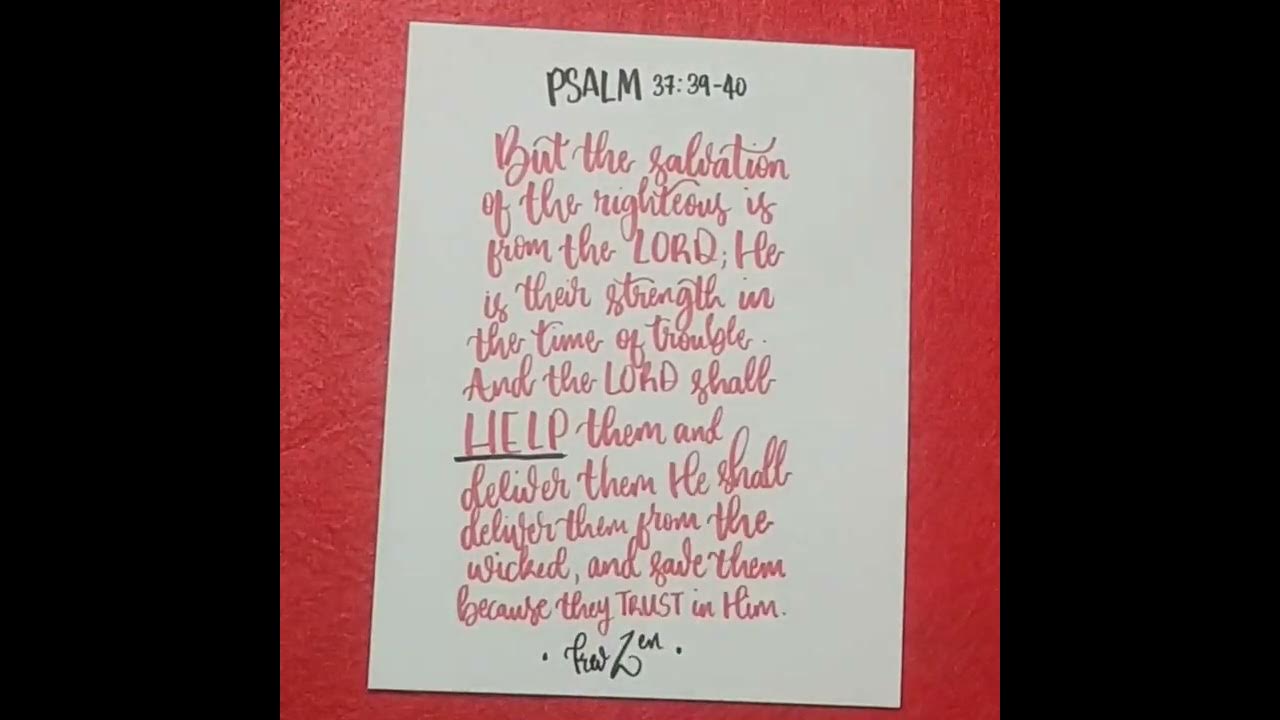 PSALM 37:39-40
But the salvation
of the righteous is
from the LORD; He
is their strength in
the time of trouble.
And the LORD shall
HELP them and
deliver them He shall
deliver them from the
wicked, and save them
because they TRUST in Him.
Zen